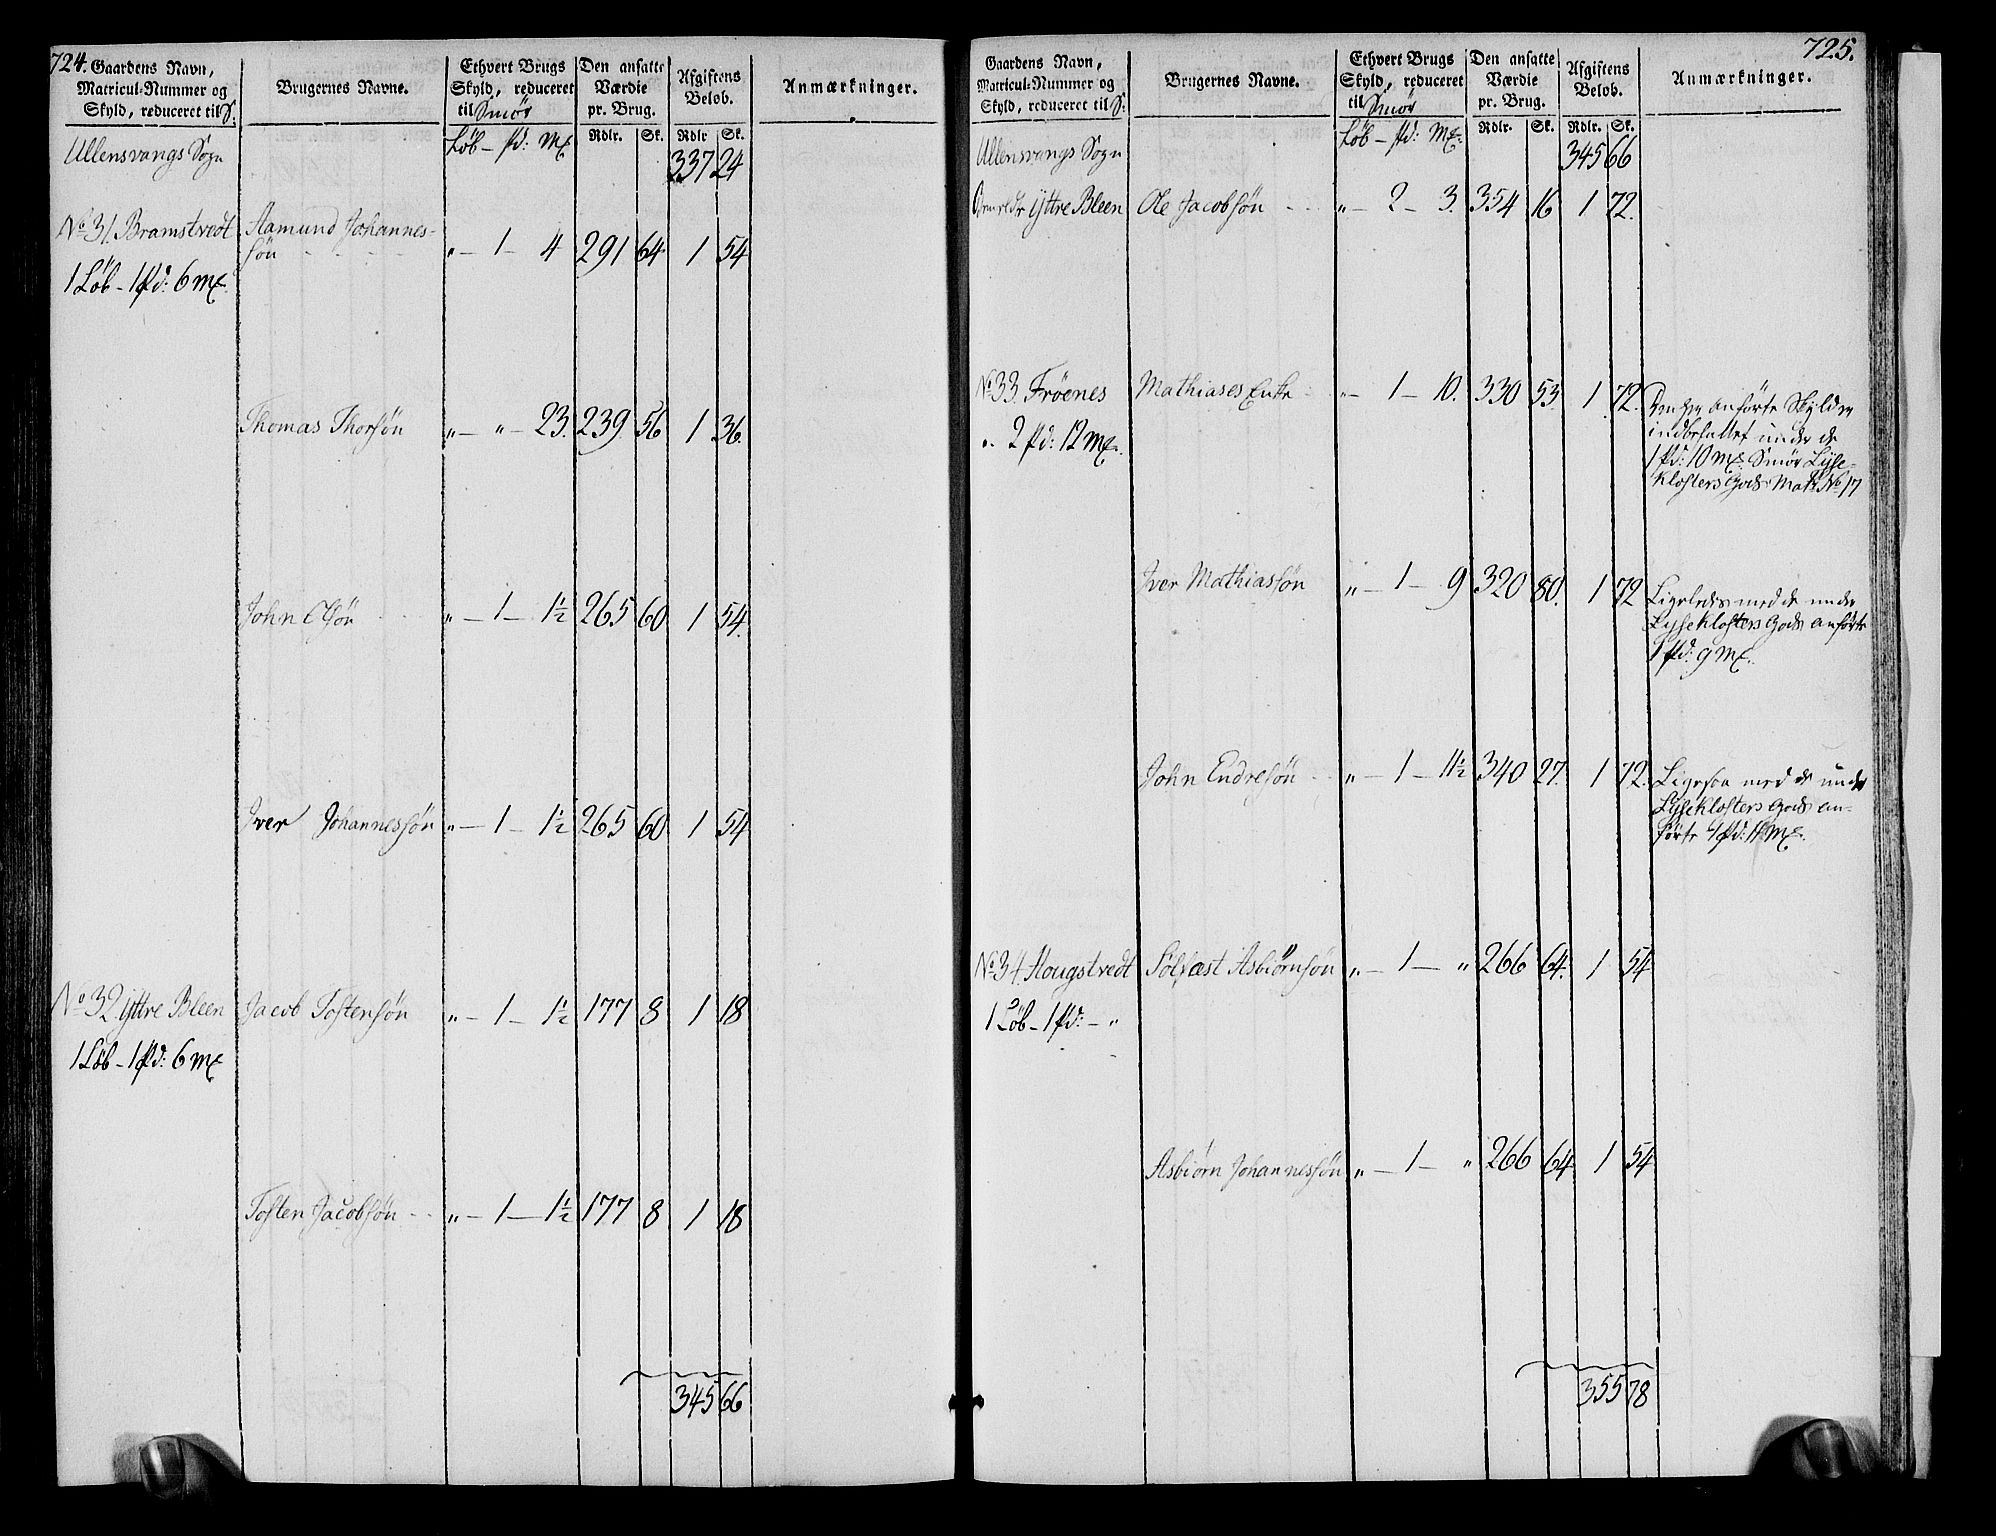 724.
Gaardens Navn,
Matricul-Nummer og
Skyld, reduceret til S:
Brugernes Navne.
Ethvert Brugs
Skyld, reduceret
til Smør
Den ansatte
Værdie
pr. Brug.
Afgiftens
Beløb.
Anmærkninger.
Rdlr. Sk. Rdlr Sk.
Ullensvangs Sogn Løb - pd: Mk 337 24
No 31. Bramstvedt Aamund Johannes-
søn " - 1 - 4 291 64 1 54
1 Løb - 1 pd: 6 mk.
Thomas Thorsøn " - " - 23. 239 56 1 36.
John Olsøn " - 1 - 1½ 265 60 1 54.
Iver Johannessøn " - 1 - 1½ 265 60 1 54
No 32 Yttre Bleen Jacob Tostensøn " - 1 - 1½ 177 8 1 18
1 Løb - 1 pd: 6 mk
Tosten Jacobsøn " - 1 - 1½ 177 8 1 18
345 66
725.
Gaardens Navn,
Matricul-Nummer og
Skyld, reduceret til S:
Brugernes Navne.
Ethvert Brugs
Skyld, reduceret
til Smør
Den ansatte
Værdie
pr. Brug.
Afgiftens
Beløb.
Anmærkninger.
Rdlr. Sk. Rdlr. Sk.
Ullensvangs Sogn Løb - pd: Mk. 345 66
Yttre Bleen Ole Jacobsøn " - 2 - 3. 354 16 1 72.
No 33. Frøenes Mathiases Enke " - 1 - 10. 330 53 1 72.
" 2 pd: 12 mk.
anførte Skyld er
indbefattet under de
1 pd: 10 mk. Smør Lyse-
Klosters Gods Matr No 17
Iver Mathiassøn " - 1 - 9 320 80. 1 72
Ligeledes med de under
Lyseklosters Gods anførte
1 pd: 9 mk.
John Endresøn " - 1 - 11½ 340 27. 1 72.
Ligesaa med de under
Lyseklosters Gods an-
førte 1 pd: 11 mk.
No 34. Hougstvedt Solfæst Asbiørnsøn " - 1 - " 266 64. 1 54
1 Løb - 1 pd: - "
Asbiørn Johannessøn " - 1 - " 266 64 1 54
355 78